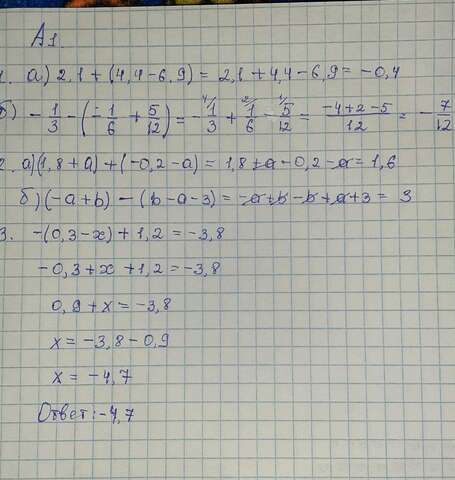 А1.
1. а) 2,1 + (4,4 - 6,9) = 2,1 + 4,4 - 6,9 = -0,4
б) -1/3 - (-1/6 + 5/12) = -⁴⁄1/3 + ²⁄1/6 - ¹⁄5/12 = (-4+2-5)/12 = -7/12
2. а) (1,8 + а) + (-0,2 - а) = 1,8 + а - 0,2 - а = 1,6
б) (-а + b) - (b - а - 3) = -а + b - b + а + 3 = 3
3. -(0,3 - x) + 1,2 = -3,8
-0,3 + x + 1,2 = -3,8
0,9 + x = -3,8
x = -3,8 - 0,9
x = -4,7
Ответ: -4,7